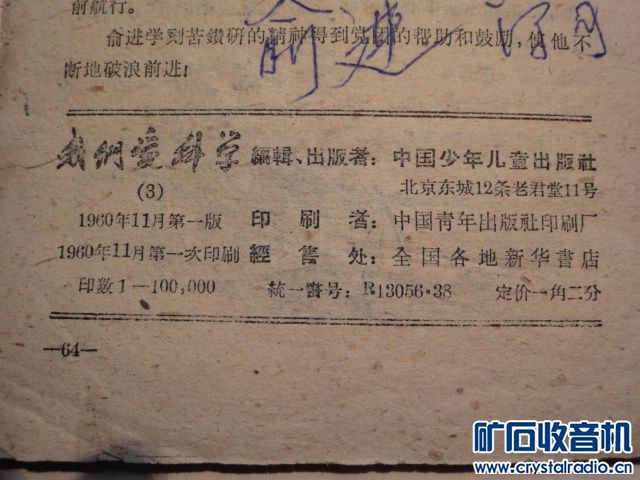 前航行。
俞进学刻苦鑽研的精神得到党团的帮助和鼓励，使他不
断地破浪前进！
我們爱科学
(3)
1960年11月第一版
1960年11月第一次印刷
印数1—100,000
編輯、出版者：中国少年儿童出版社
北京东城12条老君堂11号
印刷者：中国青年出版社印刷厂
經售处：全国各地新华書店
統一書号：R13056·38 定价一角二分
—64—
矿石收音机
www.crystalradio.cn